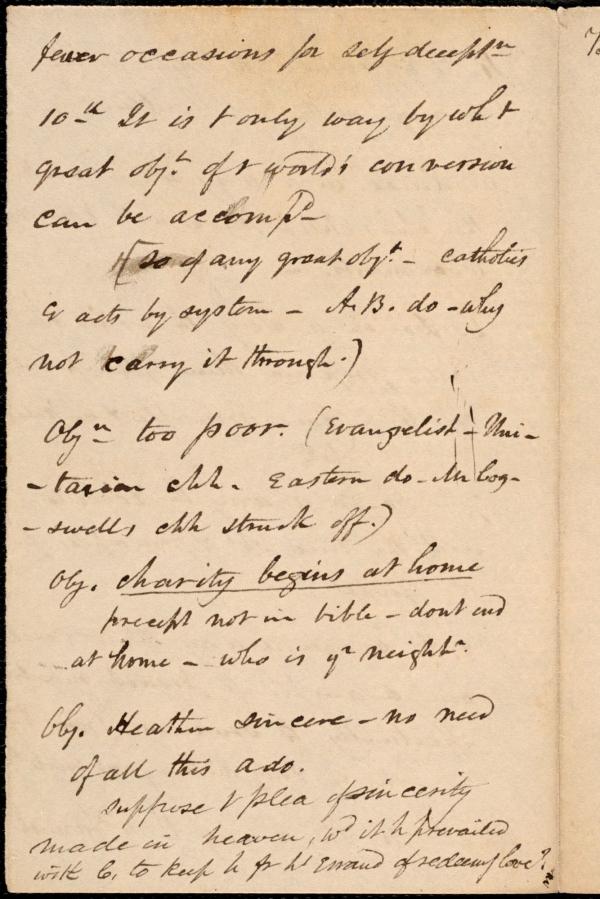 fewer occasions for self decept.n
10th It is t only way by wh t
great obj.t of t world's conversion
can be accompd
(so of any great obj.t - catholics
& acts by system - A.B. do - why
not carry it through.)
Obj.n too poor. (Evangelist - Uni-
-tarian chh. Eastern do - Mr Cog-
-swells chh struck off.)
Obj. charity begins at home
precept not in bible - dont end
at home - who is yr neighbr.
Obj. Heathen sincere - no need
of all this ado.
suppose t plea of sincerity
made in heaven, wd it h prevailed
with C. to keep h fr hs errand of redeemg love?